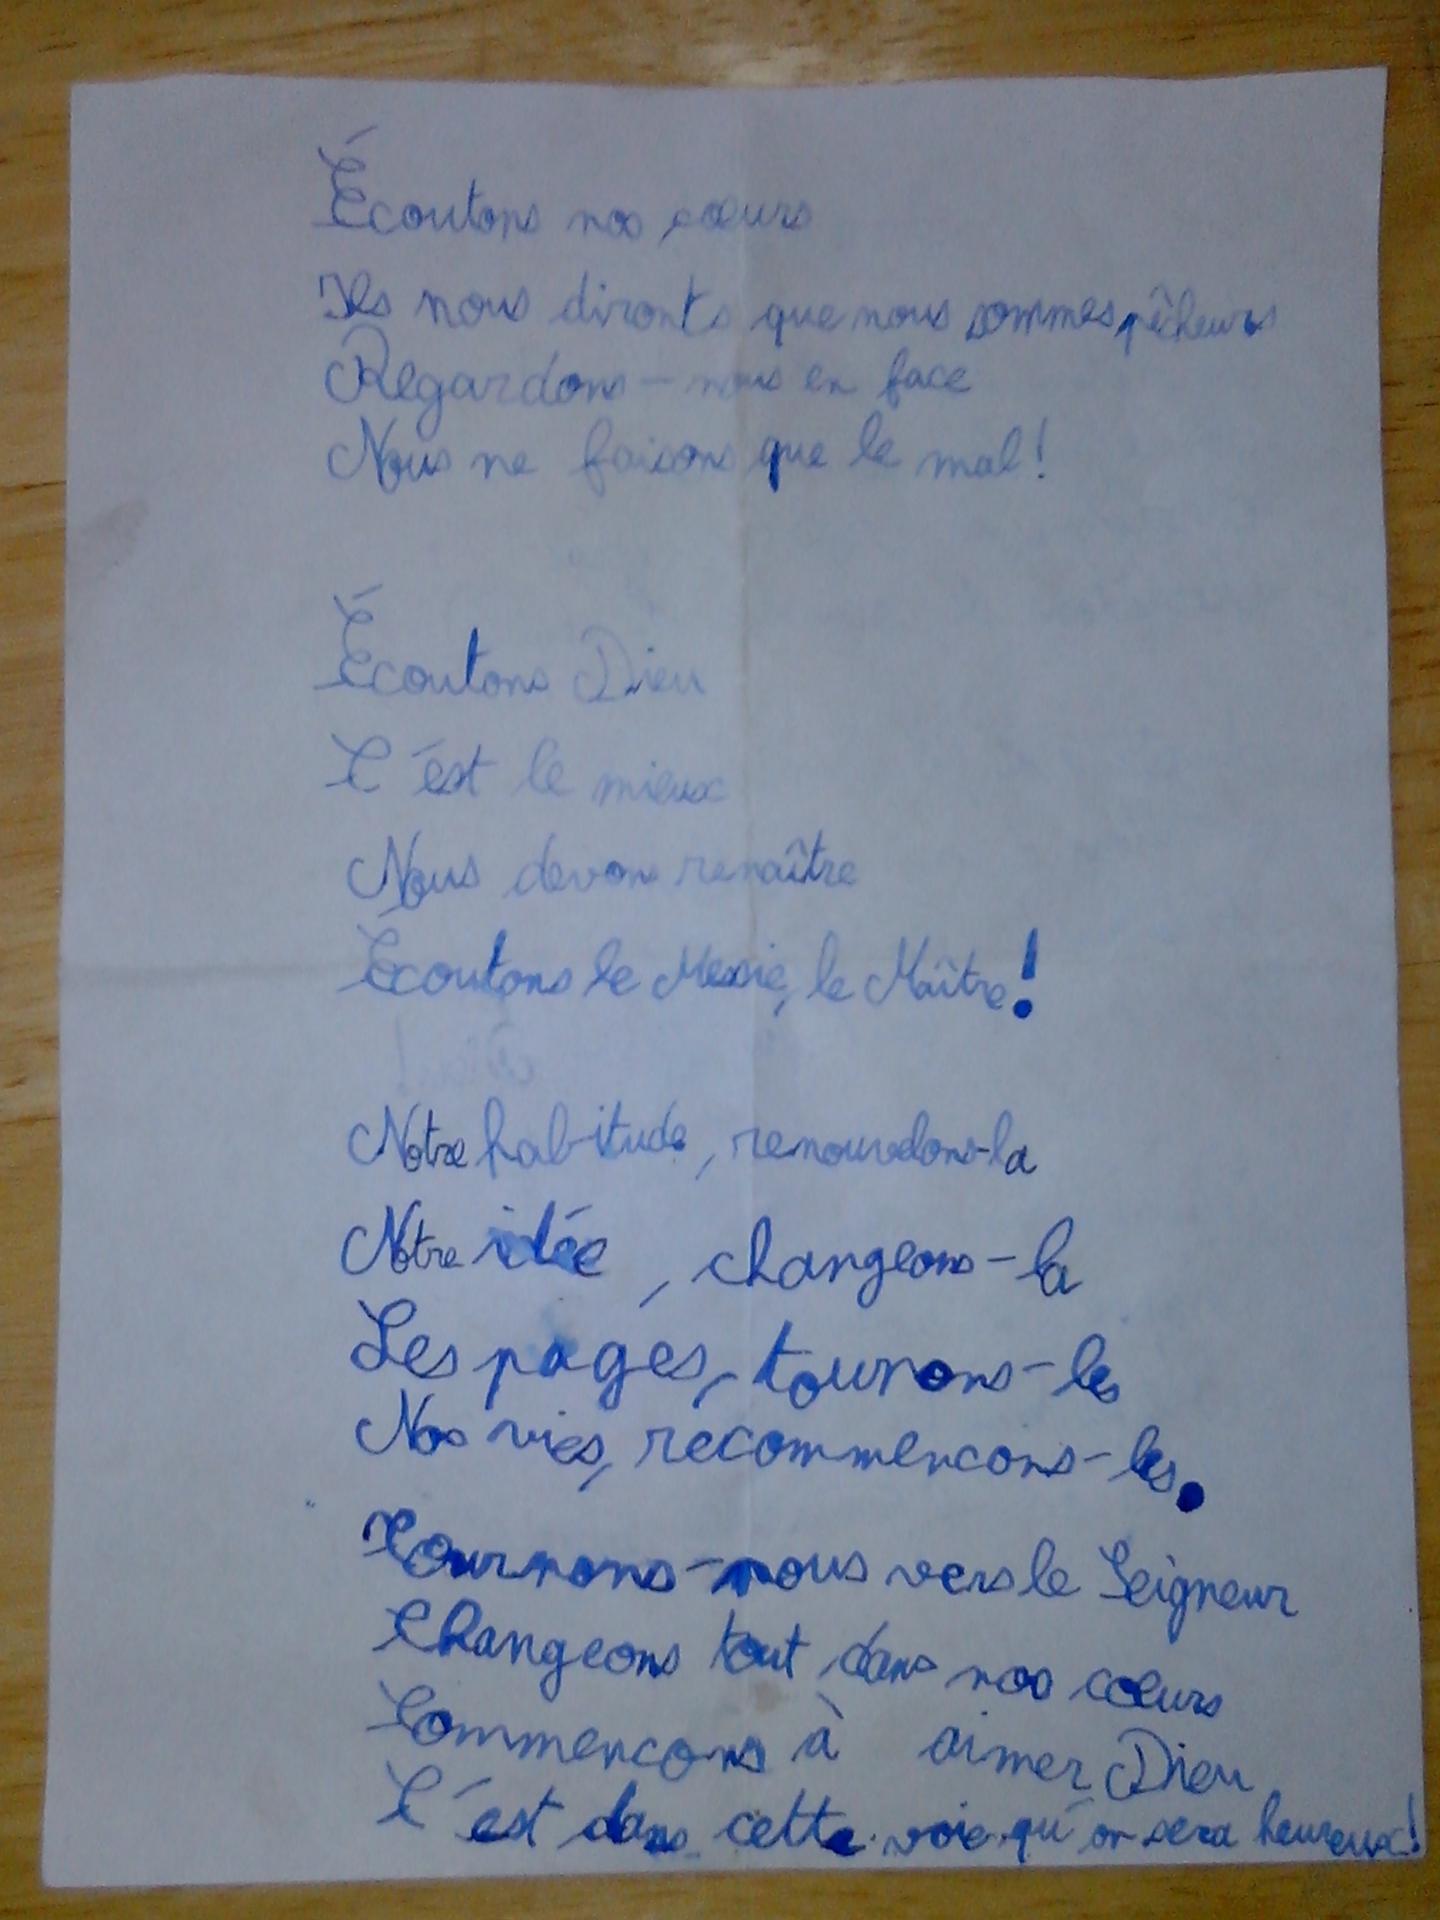 Écoutons nos cœurs
Ils nous dironts que nous sommes pêcheurs
Regardons-nous en face
Nous ne faisons que le mal!
Écoutons Dieu
C'est le mieux
Nous devons renaître
Écoutons le Messie, le Maître!
Notre habitude, renouvelons-la
Notre idée, changeons-la
Les pages, tournons-les
Nos vies, recommencons-les.
Tournons-nous vers le Seigneur
Changeons tout dans nos cœurs
Commencons à aimer Dieu
C'est dans cette voie qu'on sera heureux!